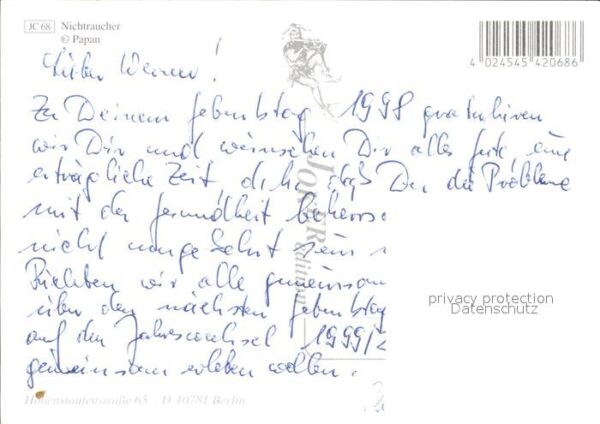 JC 68 Nichtraucher
© Papan
4 024545 420686
Lieber Werner!
Zu Deinem Geburtstag 1998 gratulieren
wir Dir und wünschen Dir alles gute, eine
erträgliche Zeit, d. h. daß Du die Probleme
mit der Gesundheit
nicht umgekehrt sein
wir alle gemeinsam
über den nächsten Geburtstag
auf den Jahreswechsel 1999/2
gemeinsam erleben wollen.
Edition
privacy protection
Datenschutz
Hohenstaufenstraße 65 · D-10781 Berlin